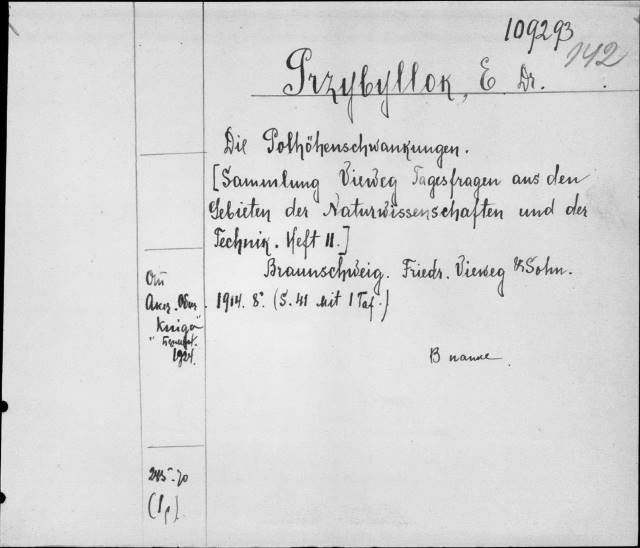 109293
142
Przybyllok, E. Dr.
Die Polhöhenschwankungen.
[Sammlung Vieweg Tagesfragen aus den
Gebieten der Naturwissenschaften und der
Technik. Heft 11.]
Braunschweig. Friedr. Vieweg & Sohn.
1914. 8°. (S. 41 mit 1 Taf.)
"Книга"
1924.
В папке
245-70
(1 р.)